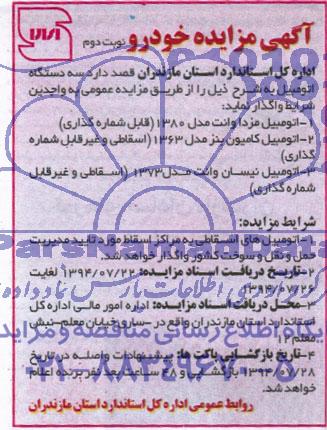 آگهی مزایده خودرو نوبت دوم
اداره کل استاندارد استان مازندران قصد دارد سه دستگاه
اتومبیل به شرح ذیل را از طریق مزایده عمومی به واجدین
شرایط واگذار نماید:
۱-اتومبیل مزدا وانت مدل ۱۳۸۰ (قابل شماره گذاری)
۲-اتومبیل کامیون بنز مدل ۱۳۶۳ (اسقاطی و غیرقابل شماره
گذاری)
۳-اتومبیل نیسان وانت مدل ۱۳۷۳ (اسقاطی و غیرقابل
شماره گذاری)
شرایط مزایده:
۱-اتومبیل های اسقاطی به مراکز اسقاط مورد تایید مدیریت
حمل و نقل و سوخت کشور واگذار خواهد شد.
۲-تاریخ دریافت اسناد مزایده: ۱۳۹۴/۰۷/۲۲ لغایت
۱۳۹۴/۰۷/۲۶
۳-محل دریافت اسناد مزایده: اداره امور مالی اداره کل
استاندارد استان مازندران واقع در -ساری خیابان معلم-نبش
معلم ۱۲
۴-تاریخ بازگشایی پاکت ها: پیشنهادات واصله در تاریخ
۱۳۹۴/۰۷/۲۸ بازگشایی و ۴۸ ساعت بعد نفر برنده اعلام
خواهد شد.
روابط عمومی اداره کل استاندارد استان مازندران